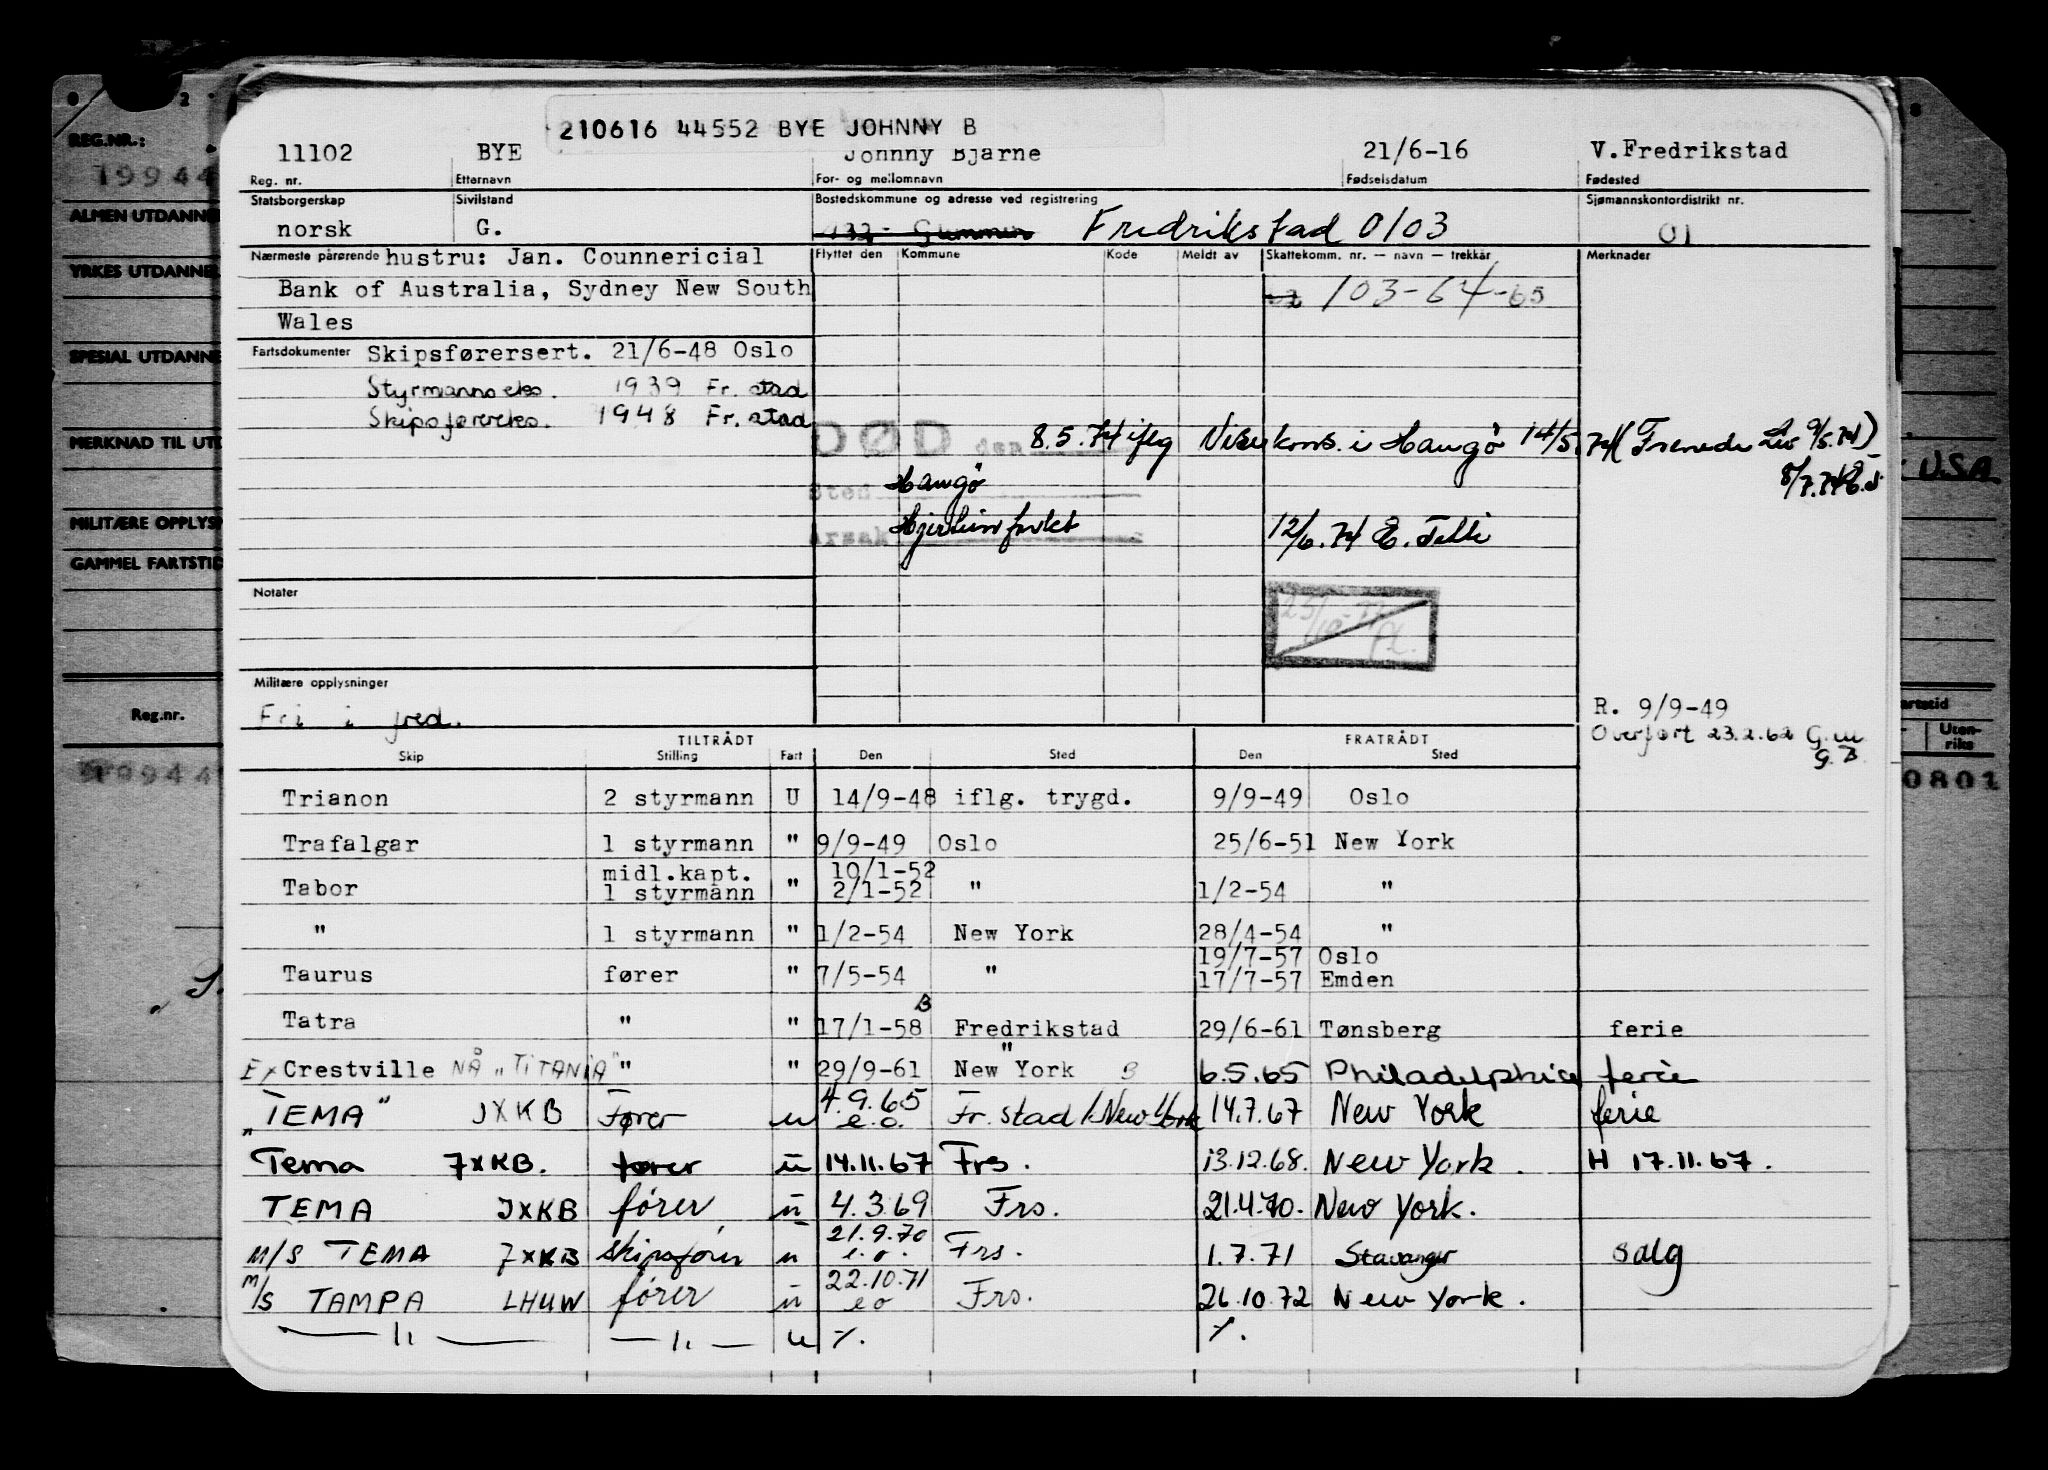 210616 44552 BYE JOHNNY B
11102 BYE Johnny Bjarne 21/6-16 V.Fredrikstad
Reg. nr. Etternavn For- og mellomnavn Fødselsdatum Fødested
Statsborgerskap Sivilstand Bostedskommune og adresse ved registrering Sjømannskontordistrikt nr.
norsk G. Fredrikstad 0103 01
Nærmeste pårørende hustru: Jan. Counnericial Flyttet den Kommune Kode Meldt av Skattekomm. nr. — navn — trekkår Merknader
Bank of Australia, Sydney New South 103-64-65
Wales
Fartsdokumenter Skipsførersert. 21/6-48 Oslo
Styrmannseks. 1939 Fr. stad
Skipsførereks. 1948 Fr. stad
DØD den 8.5.74 iflg Visekons. i Hangö 14/5.74
8/7.74
Sted Hangö
Årsak 12/6.74
Notater
Militære opplysninger
Fri i fred.
R. 9/9-49
Overført 23.2.62 G.M.
G.B.
TILTRÅDT FRATRÅDT
Skip Stilling Fart Den Sted Den Sted
Trianon 2 styrmann U 14/9-48 iflg. trygd. 9/9-49 Oslo
Trafalgar 1 styrmann " 9/9-49 Oslo 25/6-51 New York
midl.kapt. 10/1-52
Tabor 1 styrmann " 2/1-52 " 1/2-54 "
" 1 styrmann " 1/2-54 New York 28/4-54 "
19/7-57 Oslo
Taurus fører " 7/5-54 " 17/7-57 Emden
B
Tatra " " 17/1-58 Fredrikstad 29/6-61 Tønsberg ferie
"
Ex Crestville NÅ "TITANIA" " " 29/9-61 New York B 6.5.65 Philadelphia ferie
"TEMA" JXKB Fører u 4.9.65 e.o. Fr. stad / New York 14.7.67 New York ferie
Tema JXKB. fører u 14.11.67 Frs. 13.12.68. New York. H 17.11.67.
TEMA JXKB fører u 4.3.69 Frs. 21.4.70. New York.
M/S TEMA JXKB skipsfører u 21.9.70 e.o. Frs. 1.7.71 Stavanger salg
M/S TAMPA LHUW fører u 22.10.71 eo Frs. 26.10.72 New York.
— 11 — — 11 — u %. %.
2
REG.NR.:
19944
ALMEN UTDANNE
YRKES UTDANNE
SPESIAL UTDANNE
MERKNAD TIL UTD
MILITÆRE OPPLYS
GAMMEL FARTSTID
Reg.nr.
8
USA
artstid
Uten-
riks
0801